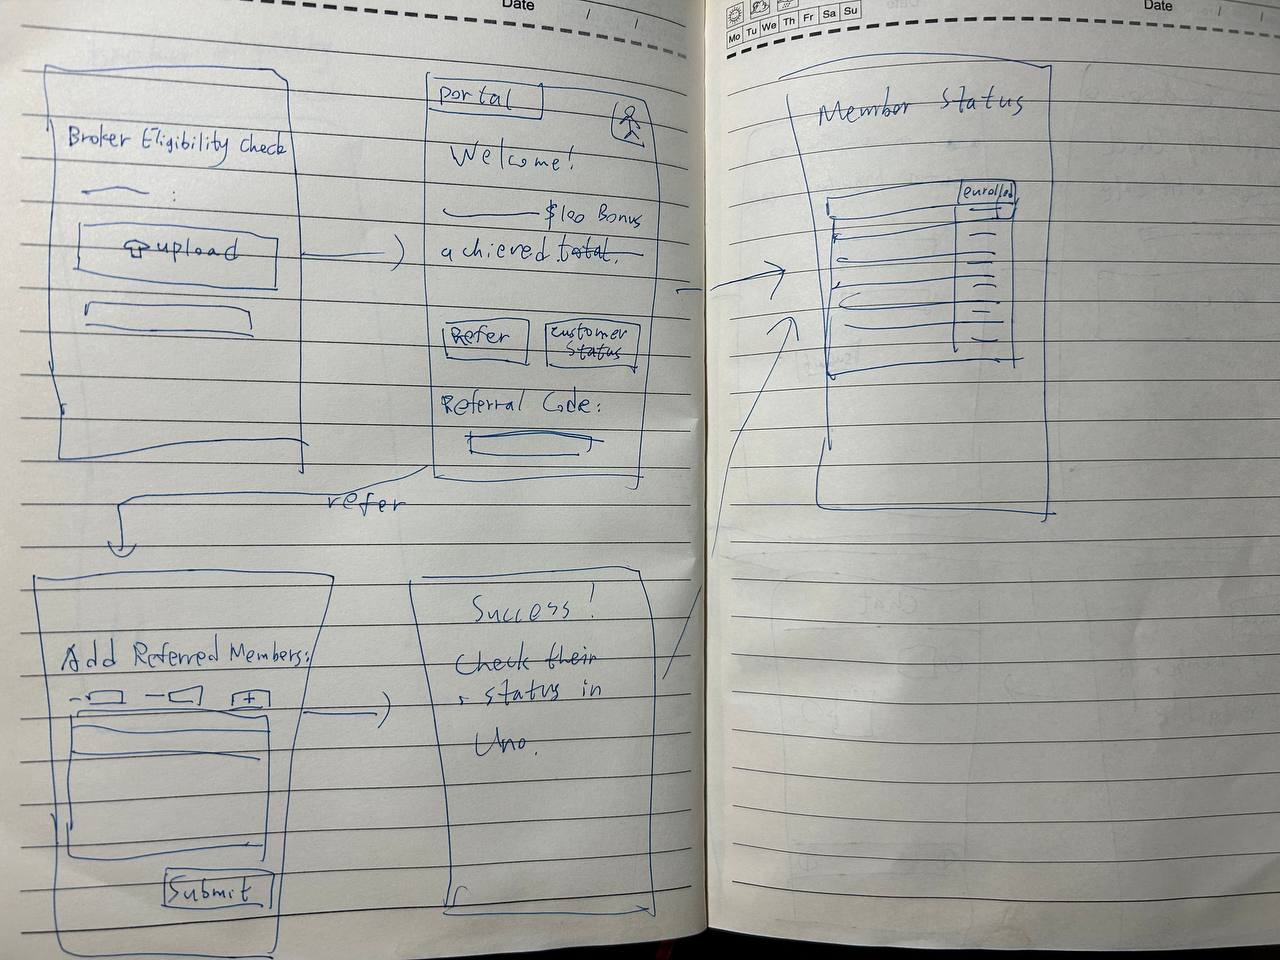 Date / /
Broker Eligibility Check
:
upload
portal
Welcome!
$100 Bonus
achieved total.
Refer
Customer
Status
Referral Code:
refer
Add Referred Members:
+
Submit
Success!
Check their
status in
Uno.
Mo Tu We Th Fr Sa Su
Date / /
Member Status
enrolled